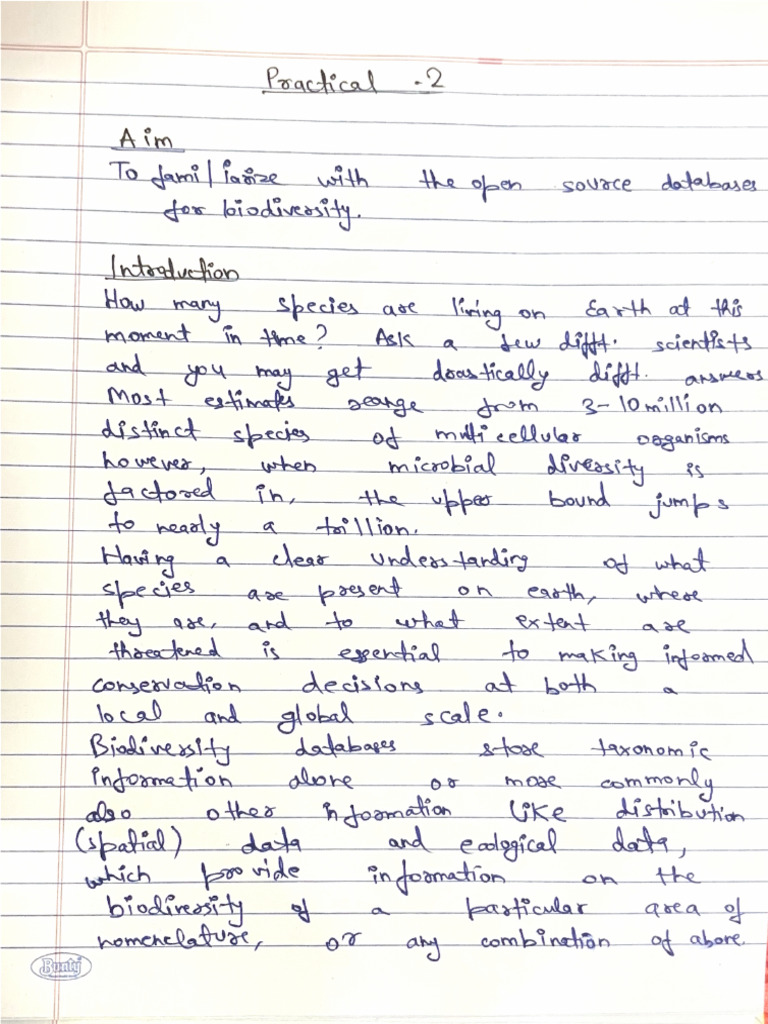 Practical - 2
Aim
To familiarize with the open source databases
for biodiversity.
Introduction
How many species are living on Earth at this
moment in time? Ask a few difft. scientists
and you may get drastically difft. answers
Most estimates range from 3-10 million
distinct species of multicellular organisms
however, when microbial diversity is
factored in, the upper bound jumps
to nearly a trillion.
Having a clear understanding of what
species are present on earth, where
they are, and to what extent are
threatened is essential to making informed
conservation decisions at both a
local and global scale.
Biodiversity databases store taxonomic
information alone or more commonly
also other information like distribution
(spatial) data and ecological data,
which provide information on the
biodiversity of a particular area of
nomenclature, or any combination of above.
Bunty